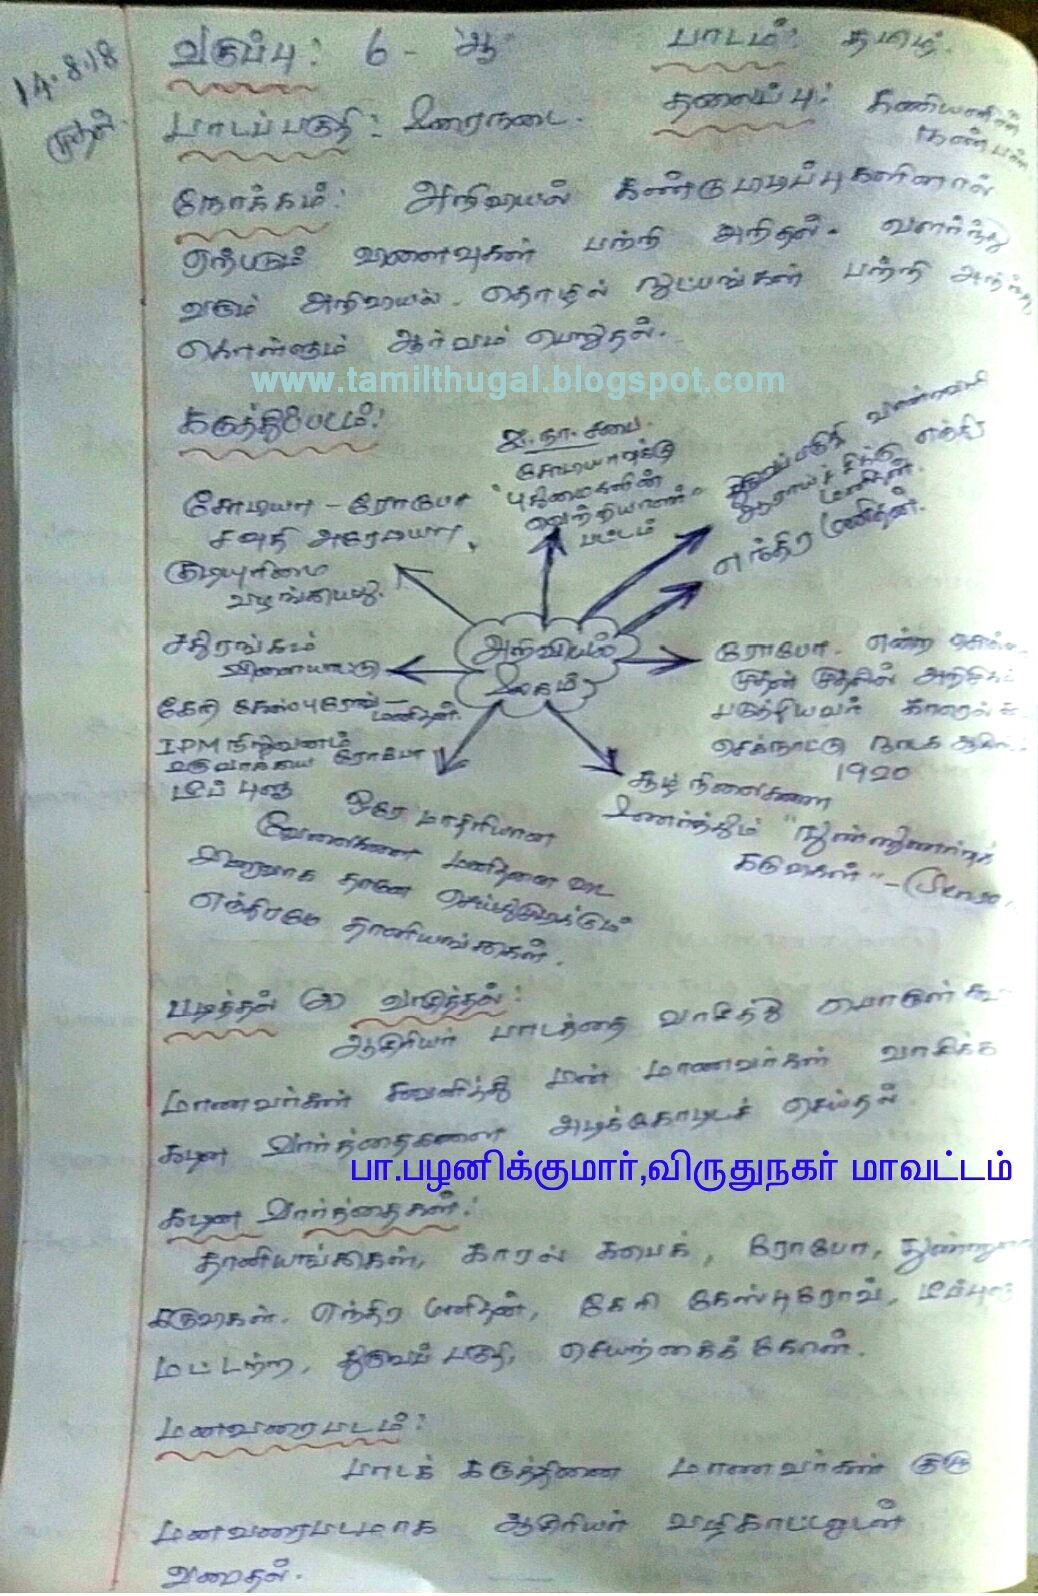 14.8.18
முதல்.
வகுப்பு: 6 - ஆ பாடம்: தமிழ்.
பாடப்பகுதி: உரைநடை. தலைப்பு: கணியனின்
நண்பன்
நோக்கம்: அறிவியல் கண்டுபிடிப்புகளினால்
ஏற்படும் விளைவுகள் பற்றி அறிதல். வளர்ந்து
வரும் அறிவியல் தொழில் நுட்பங்கள் பற்றி அறிந்து
கொள்ளும் ஆர்வம் பெறுதல்.
www.tamilthugal.blogspot.com
கருத்துப்படம்:
ஐ.நா.சபை.
சோபியாவுக்கு
"புதுமைகளின்
வெற்றியாளர்"
பட்டம்
துருவப்பகுதி விண்வெளி
ஆராய்ச்சிக்கு எந்திர
மனிதன்.
எந்திர மனிதன்.
சோபியா - ரோபோ
சவுதி அரேபியா,
குடியுரிமை
வழங்கியது.
அறிவியல்
உலகம்
சதுரங்கம்
விளையாட்டு
கேரி கேஸ்புரோவ் -
மனிதன்.
IPM நிறுவனம்
உருவாக்கிய ரோபோ
டீப் புளூ
ரோபோ என்ற
முதன் முதலில்
படுத்தியவர் காரெல்
செக்நாட்டு நாடக
1920
சூழ்நிலைகளை
உணர்த்தும் "நுண்ணுணர்வுக்
கருவிகள்" -
ஒரே மாதிரியான
வேலைகளை மனிதனை விட
விரைவாக தானே செய்துமுடிக்கும்
எந்திரமே தானியங்கிகள்.
படித்தல் (ம) வாசித்தல்:
ஆசிரியர் பாடத்தை வாசித்து பொருள் கூ
மாணவர்கள் கவனித்து பின் மாணவர்கள் வாசிக்க
கடின வார்த்தைகளை அடிக்கோடிடச் செய்தல்.
பா.பழனிக்குமார்,விருதுநகர் மாவட்டம்
கடின வார்த்தைகள்:
தானியங்கிகள், காரல் கபெக், ரோபோ,
கருவிகள். எந்திர மனிதன், கேரி கேஸ்புரோவ், டீப்புளூ
மட்டற்ற, துருவப் பகுதி, செயற்கைக் கோள்.
மனவரைபடம்:
பாடக் கருத்தினை மாணவர்கள் குழு
மனவரைபடமாக ஆசிரியர் வழிகாட்டலுடன்
வரைதல்.